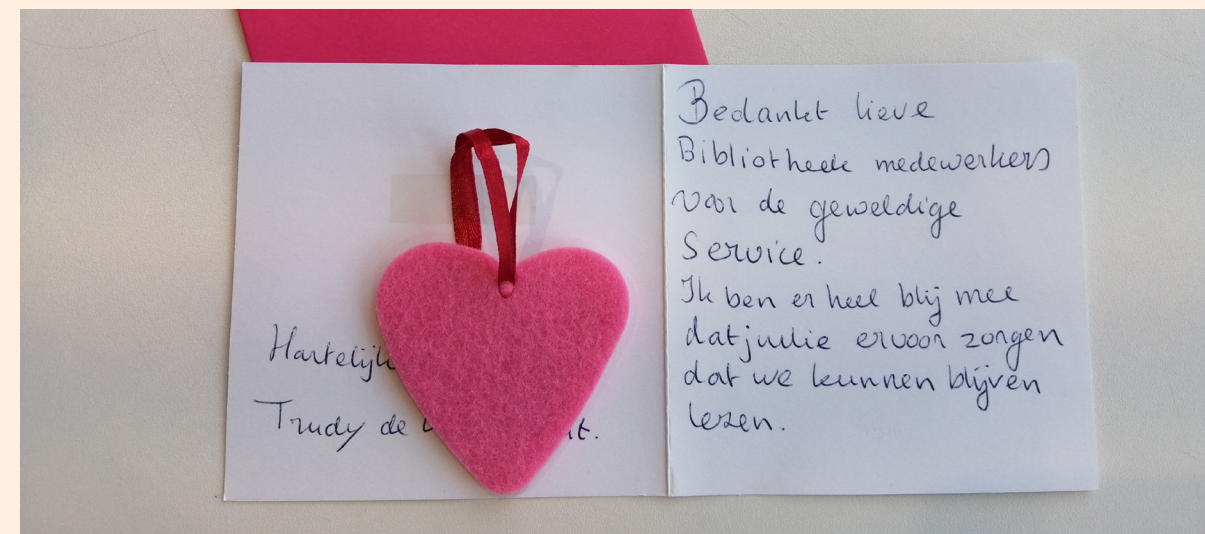 Hartelijk
Trudy de
Bedankt lieve
Bibliotheek medewerkers
voor de geweldige
Service.
Ik ben er heel blij mee
dat jullie ervoor zorgen
dat we kunnen blijven
lezen.